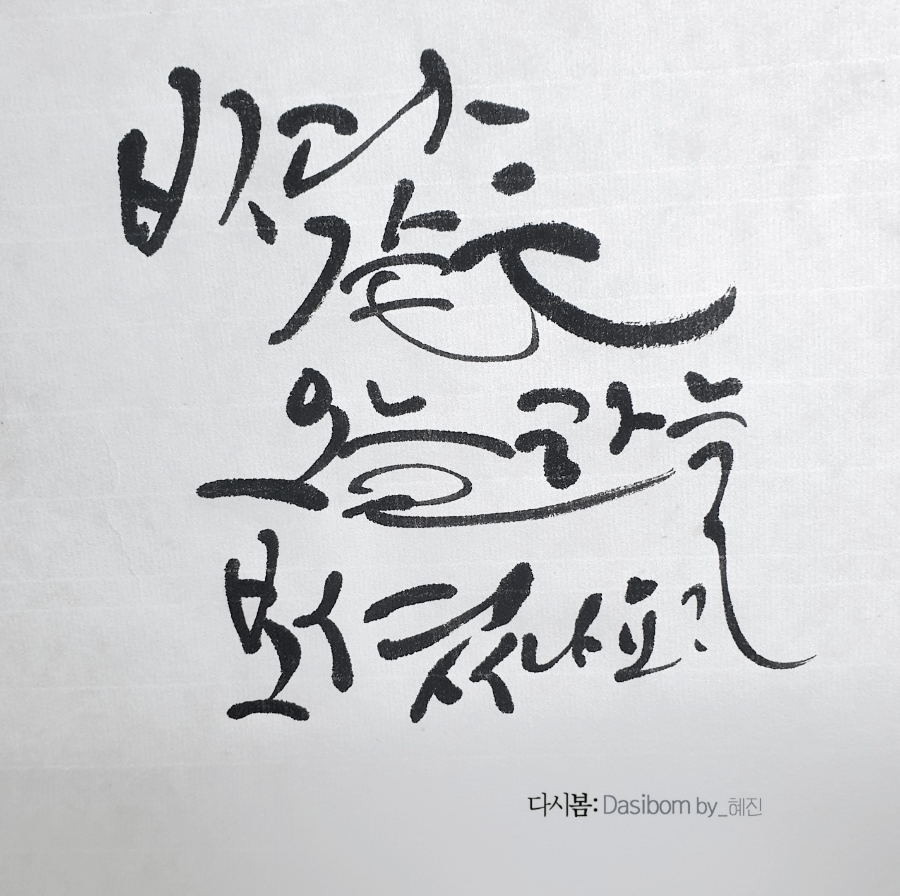 바다
같은
오늘 하늘
보셨나요?
다시봄: Dasibom by_혜진